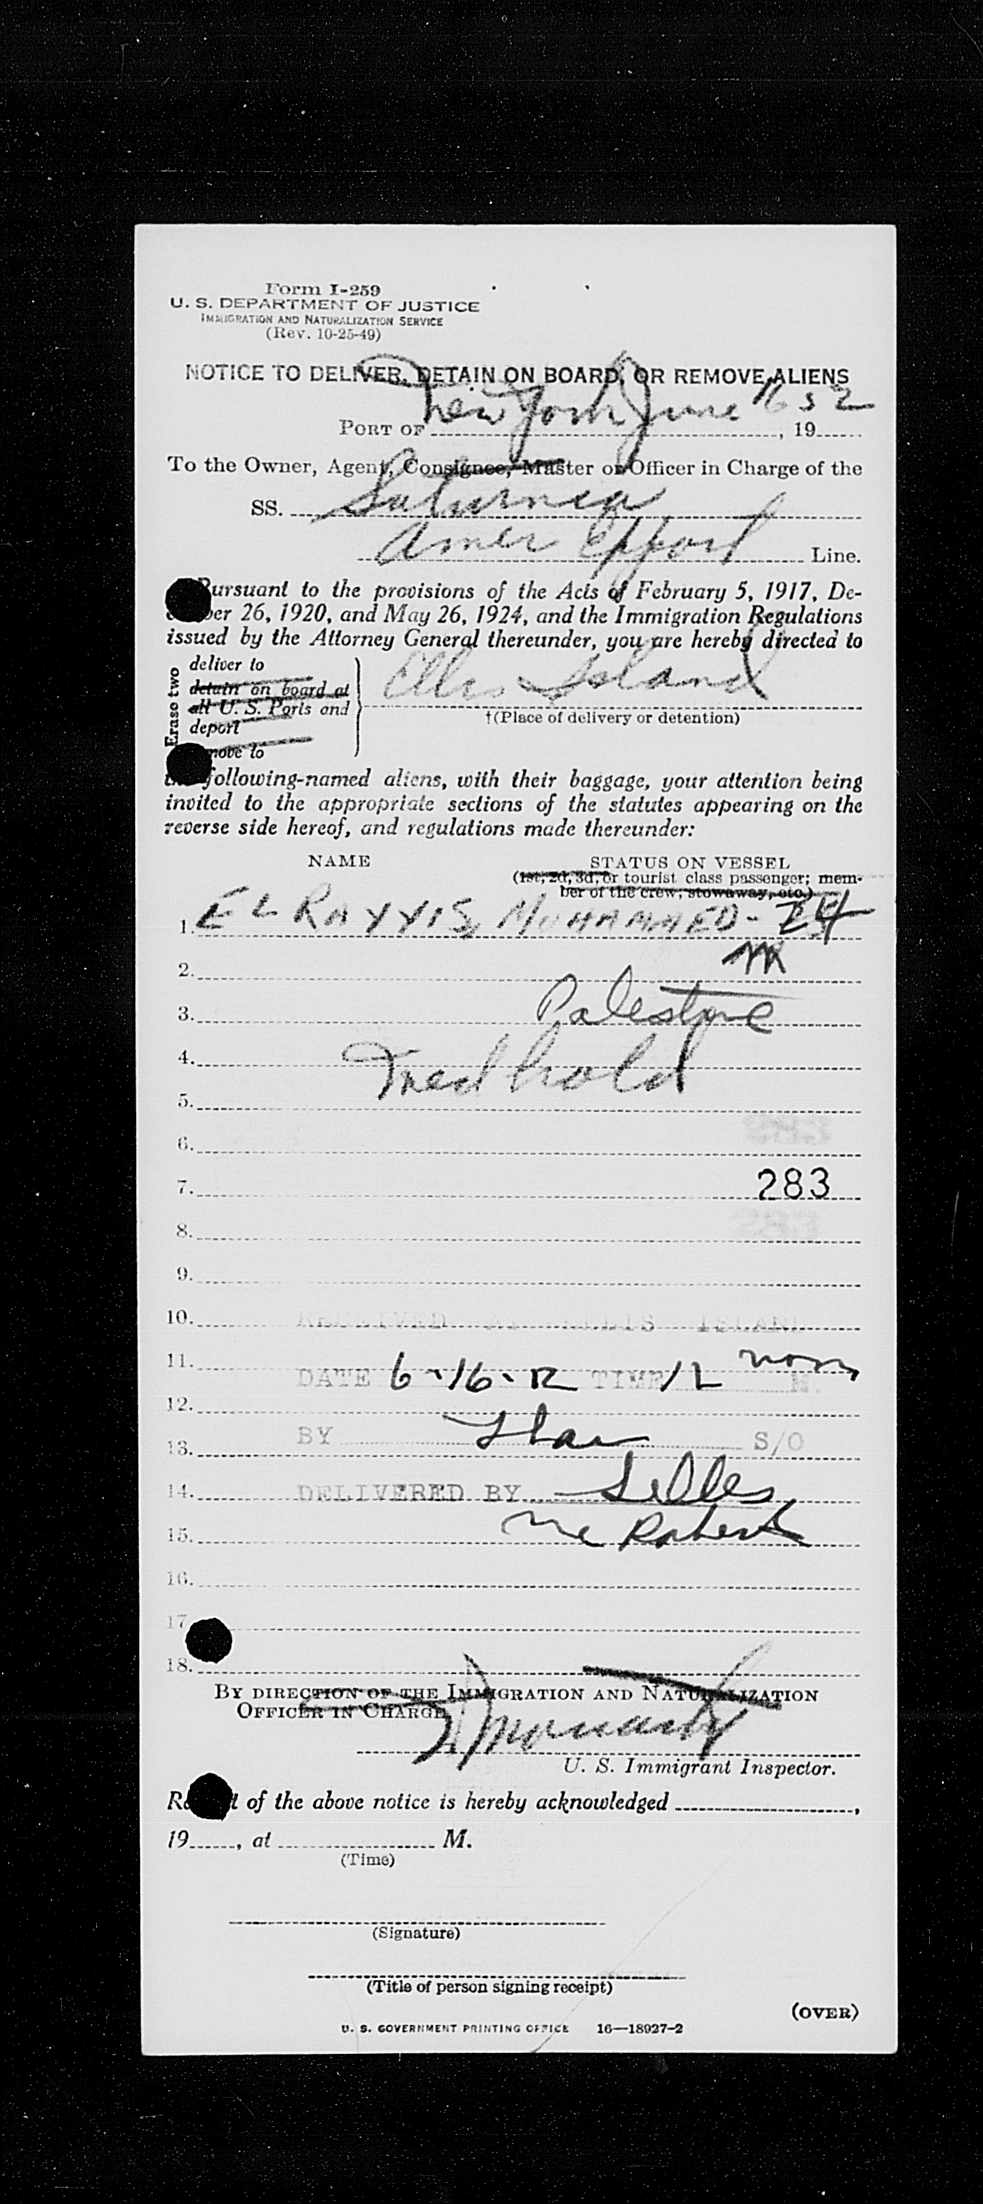 Form I-259
U. S. DEPARTMENT OF JUSTICE
IMMIGRATION AND NATURALIZATION SERVICE
(Rev. 10-25-49)
NOTICE TO DELIVER, DETAIN ON BOARD, OR REMOVE ALIENS
PORT OF New York June 16, 1952
To the Owner, Agent, Consignee, Master or Officer in Charge of the
SS. Saturnia
Amer Export Line.
Pursuant to the provisions of the Acts of February 5, 1917, De-
ber 26, 1920, and May 26, 1924, and the Immigration Regulations
issued by the Attorney General thereunder, you are hereby directed to
Erase two
deliver to
detain on board at
all U. S. Ports and
deport
move to
Ellis Island
†(Place of delivery or detention)
the following-named aliens, with their baggage, your attention being
invited to the appropriate sections of the statutes appearing on the
reverse side hereof, and regulations made thereunder:
NAME STATUS ON VESSEL
(1st, 2d, 3d, or tourist class passenger; mem-
ber of the crew, stowaway, etc.)
1. EL RAYYIS, MUHAMMED - 24
2. M
3. Palestine
4. Med hold
5.
6.
7. 283
8.
9.
10. RECEIVED AT ELLIS ISLAND
11. DATE 6-16-52 TIME 12 noon M.
12.
13. BY S/O
14. DELIVERED BY
15.
16.
17.
18.
BY DIRECTION OF THE IMMIGRATION AND NATURALIZATION
OFFICER IN CHARGE
U. S. Immigrant Inspector.
of the above notice is hereby acknowledged ,
19 , at M.
(Time)
(Signature)
(Title of person signing receipt)
(OVER)
U. S. GOVERNMENT PRINTING OFFICE 16—18927-2